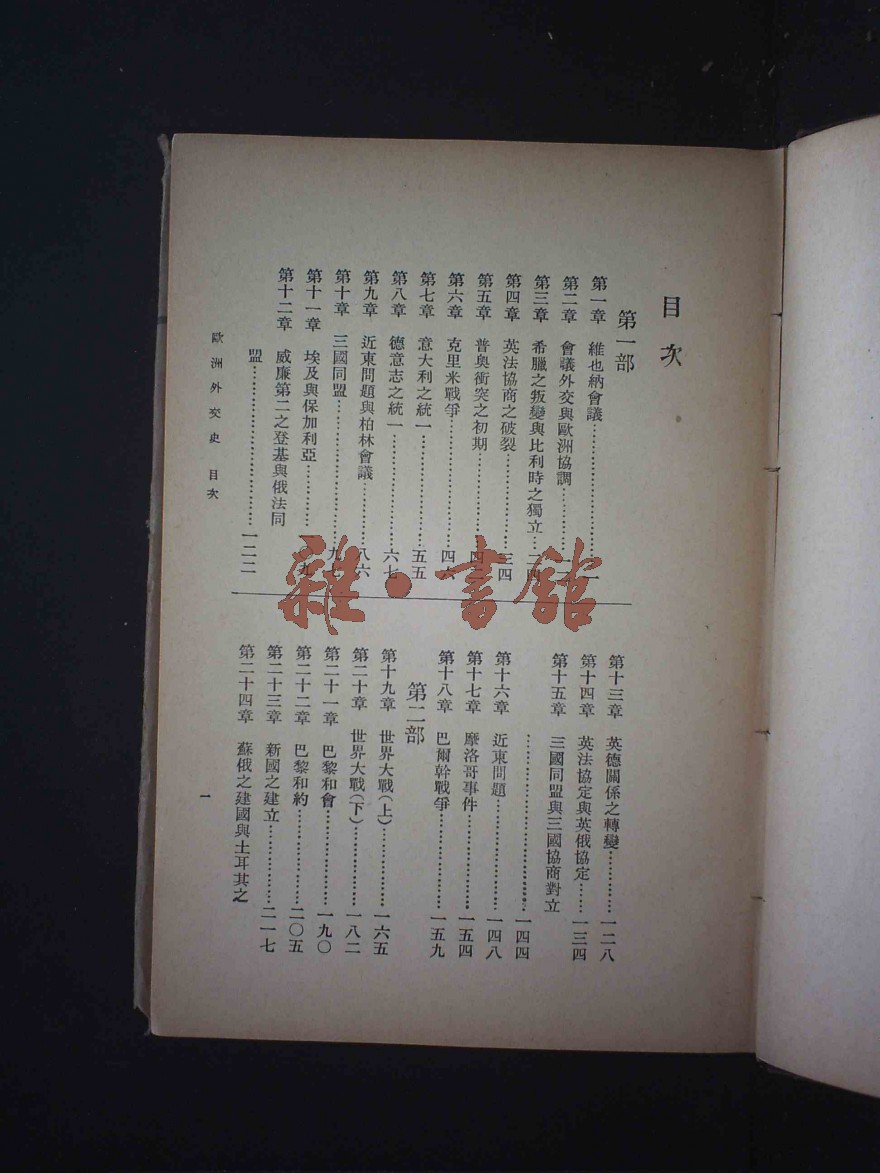 目次
第一部
第一章 維也納會議……一
第二章 會議外交與歐洲協調……
第三章 希臘之叛變與比利時之獨立…二四
第四章 英法協商之破裂……三四
第五章 普奧衝突之初期……四二
第六章 克里米戰爭……四六
第七章 意大利之統一……五五
第八章 德意志之統一……六七
第九章 近東問題與柏林會議……八六
第十章 三國同盟……九
第十一章 埃及與保加利亞……一〇九
第十二章 威廉第二之登基與俄法同
盟……一二二
第十三章 英德關係之轉變……一二八
第十四章 英法協定與英俄協定……一三四
第十五章 三國同盟與三國協商對立
……一四四
第十六章 近東問題……一四八
第十七章 摩洛哥事件……一五四
第十八章 巴爾幹戰爭……一五九
第二部
第十九章 世界大戰(上)……一六五
第二十章 世界大戰(下)……一八二
第二十一章 巴黎和會……一九〇
第二十二章 巴黎和約……二〇五
第二十三章 新國之建立……二一七
第二十四章 蘇俄之建國與土耳其之
歐洲外交史 目次
一
雜·書館